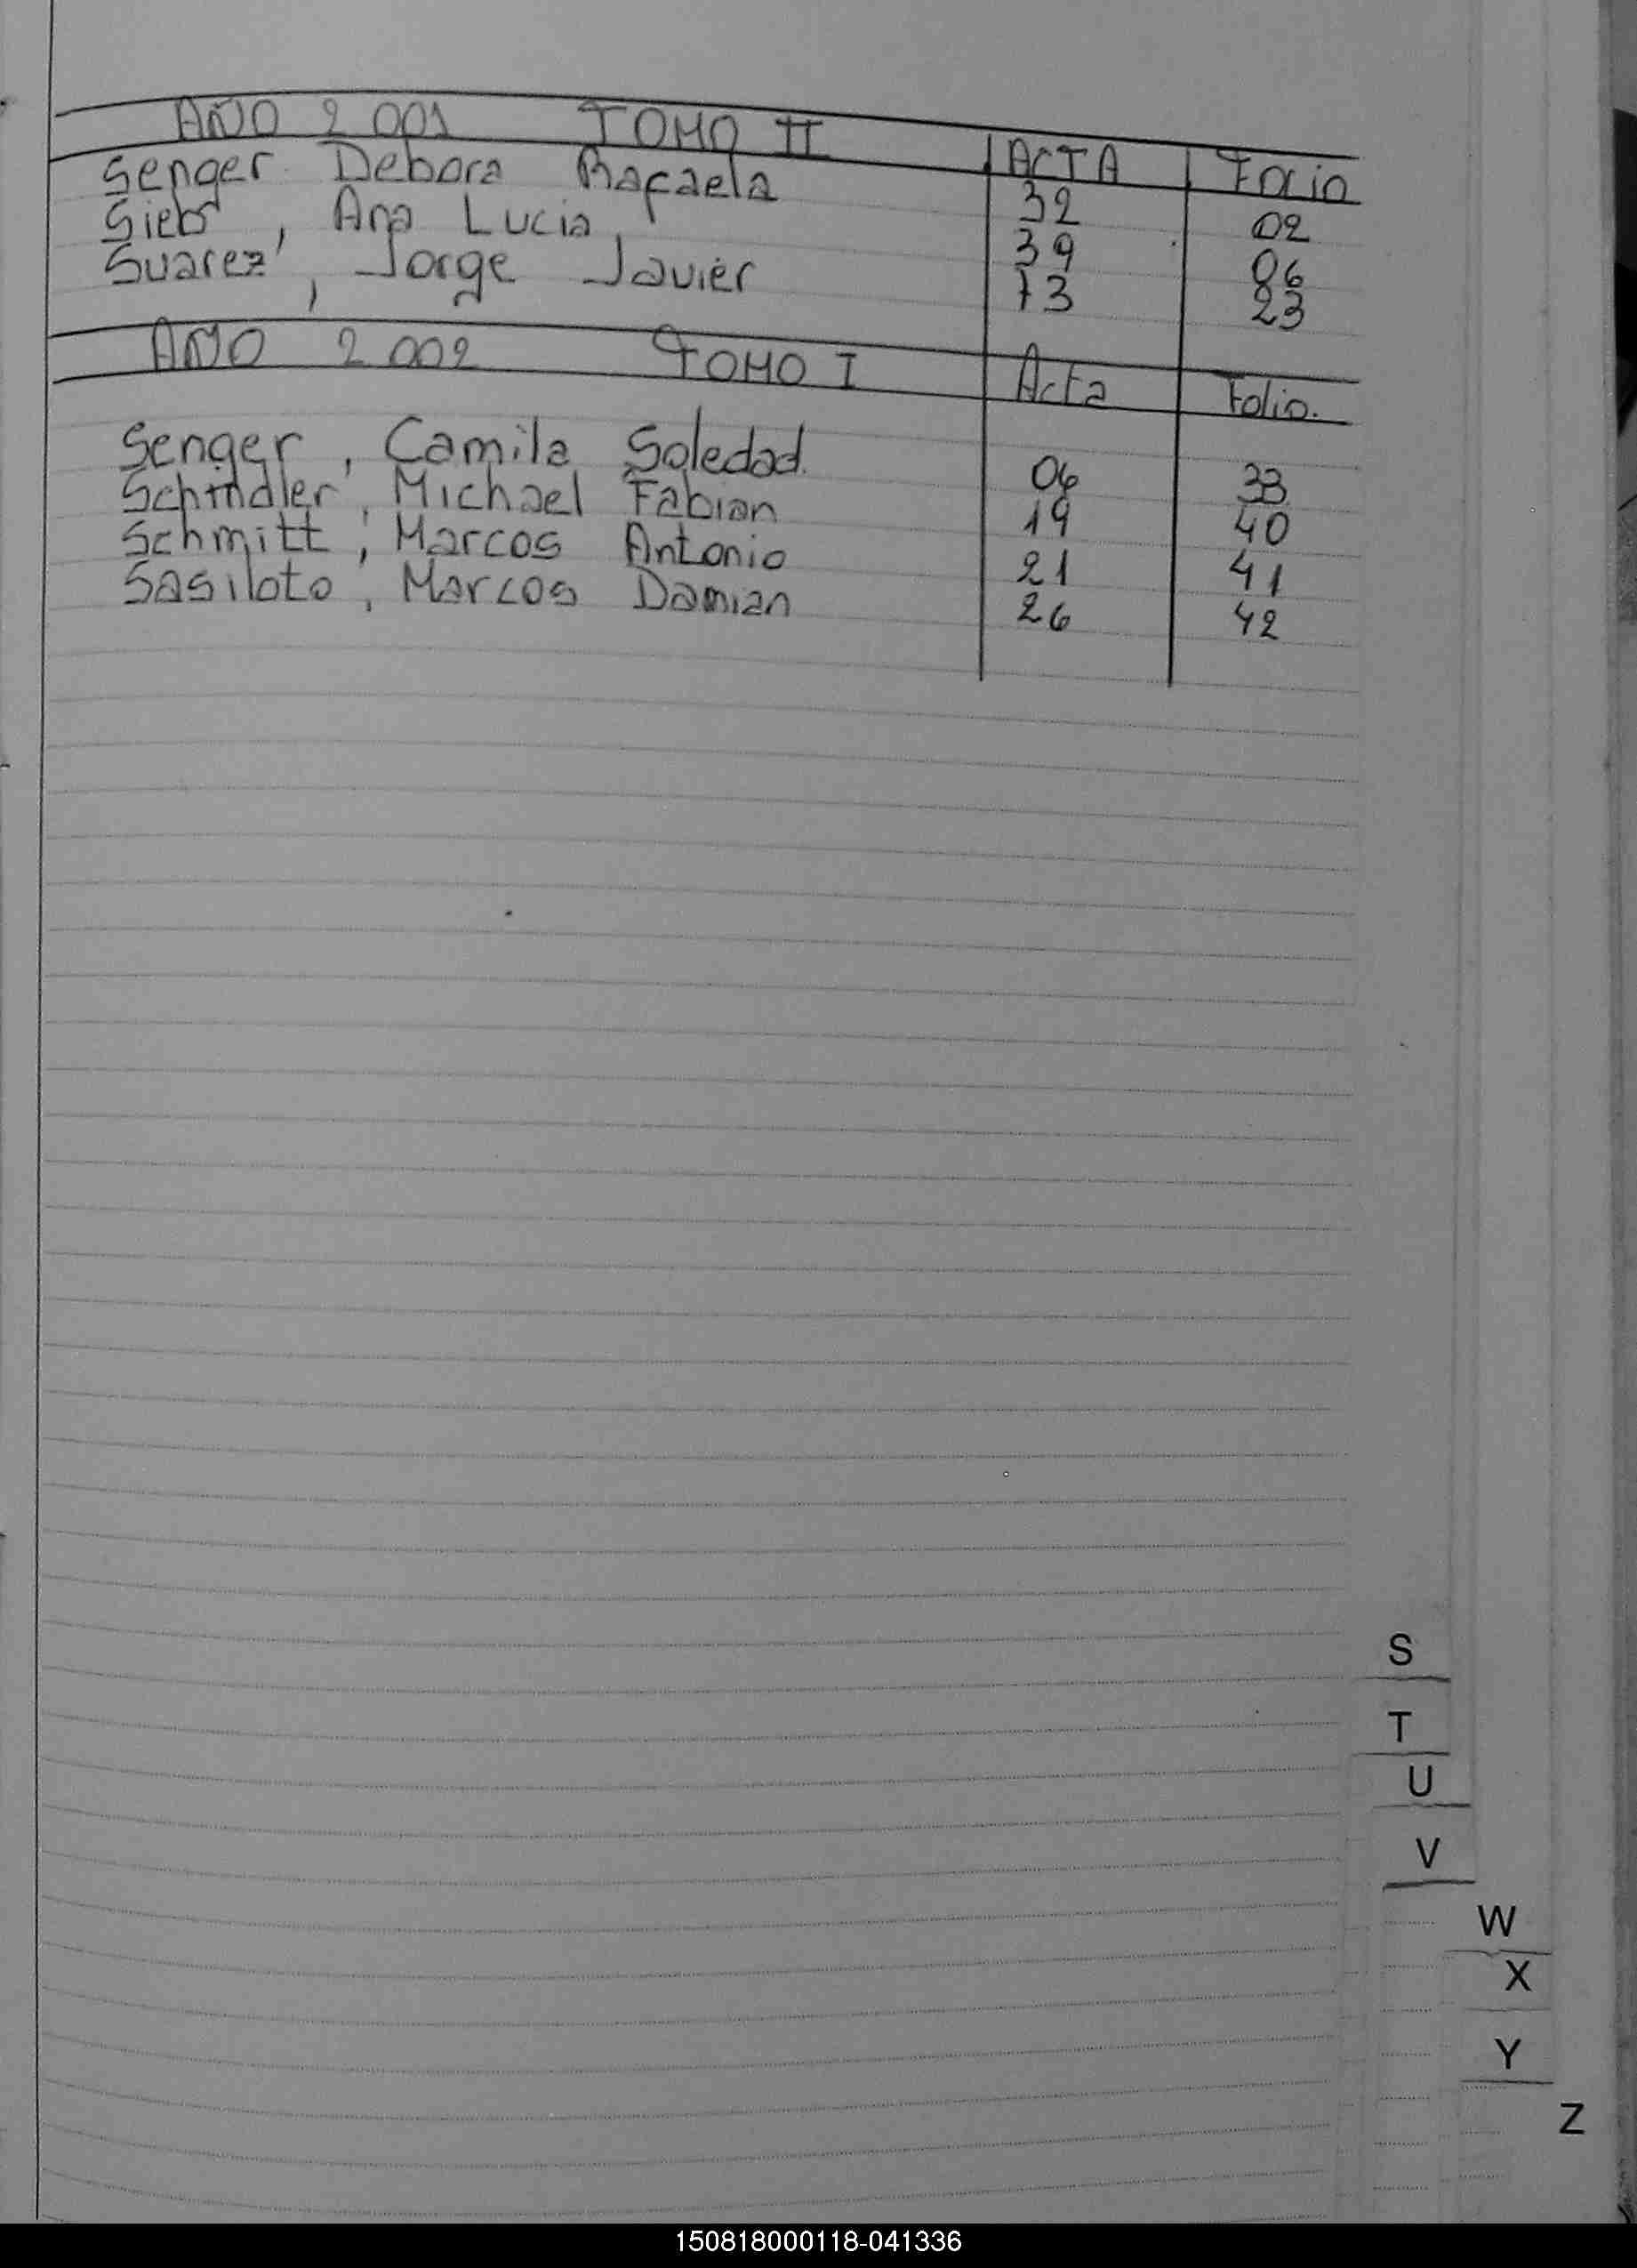 AÑO 2001 TOMO II ACTA Folio
Senger Debora Rafaela 32 02
Sieb, Ana Lucia 39 06
Suarez, Jorge Javier 73 23
AÑO 2002 TOMO I Acta Folio.
Senger, Camila Soledad. 06 33
Schindler, Michael Fabian 19 40
Schmitt, Marcos Antonio 21 41
Sasiloto, Marcos Damian 26 42
S
T
U
V
W
X
Y
Z
150818000118-041336